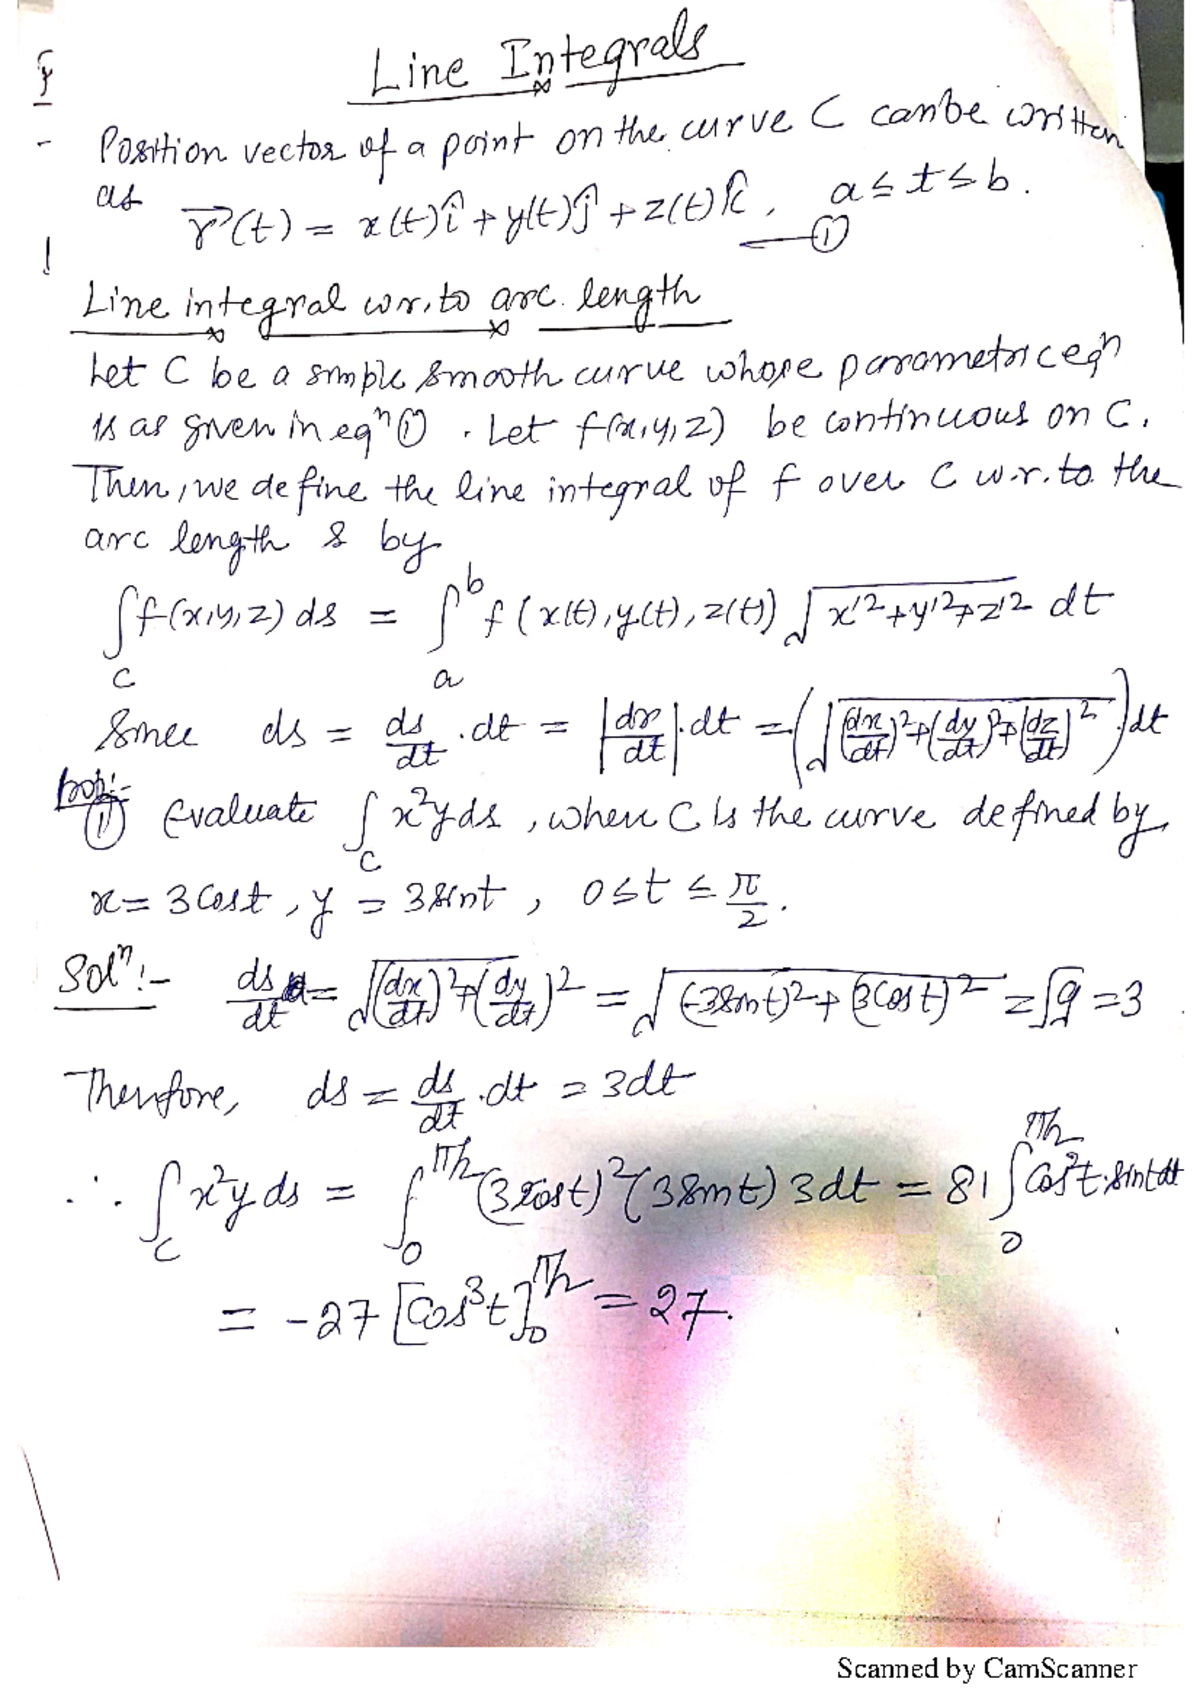 Line Integrals
Position vector of a point on the curve C can be written
as r⃗(t) = x(t)î + y(t)ĵ + z(t)k̂, a ≤ t ≤ b. ①
Line integral w.r.to arc length
Let C be a simple smooth curve whose parametric eqⁿ
is as given in eqⁿ ①. Let f(x,y,z) be continuous on C.
Then, we define the line integral of f over C w.r.to the
arc length s by
∫_C f(x,y,z) ds = ∫_a^b f(x(t), y(t), z(t)) √(x'² + y'² + z'²) dt
Since ds = ds/dt . dt = |dr/dt| . dt = (√((dx/dt)² + (dy/dt)² + (dz/dt)²)) dt
① Evaluate ∫_C x²y ds, where C is the curve defined by
x = 3 cost, y = 3 sint, 0 ≤ t ≤ π/2.
Solⁿ:- ds/dt = √((dx/dt)² + (dy/dt)²) = √((-3sint)² + (3cost)²) = √9 = 3
Therefore, ds = ds/dt . dt = 3dt
∴ ∫_C x²y ds = ∫_0^π/2 (3cost)² (3sint) 3dt = 81 ∫_0^π/2 cos²t.sint dt
= -27 [cos³t]_0^π/2 = 27.
Scanned by CamScanner